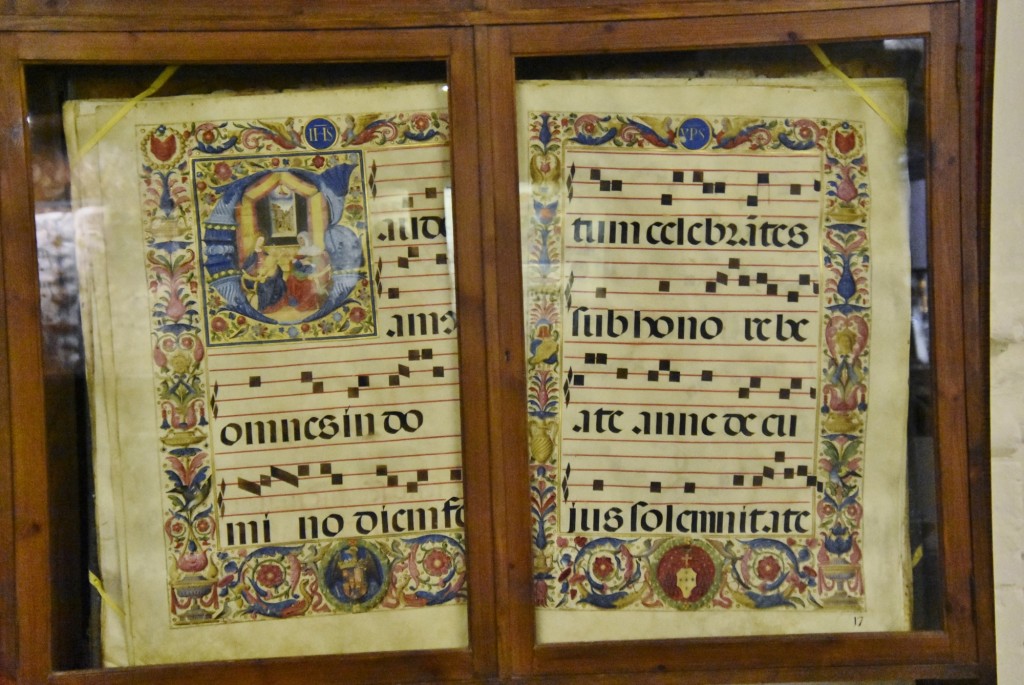 IHS
Gaude
amus
omnes in do
mi no diem fe
YPS
tum celebrãtes
sub hono re be
ate anne de cu
jus solemnitate
17